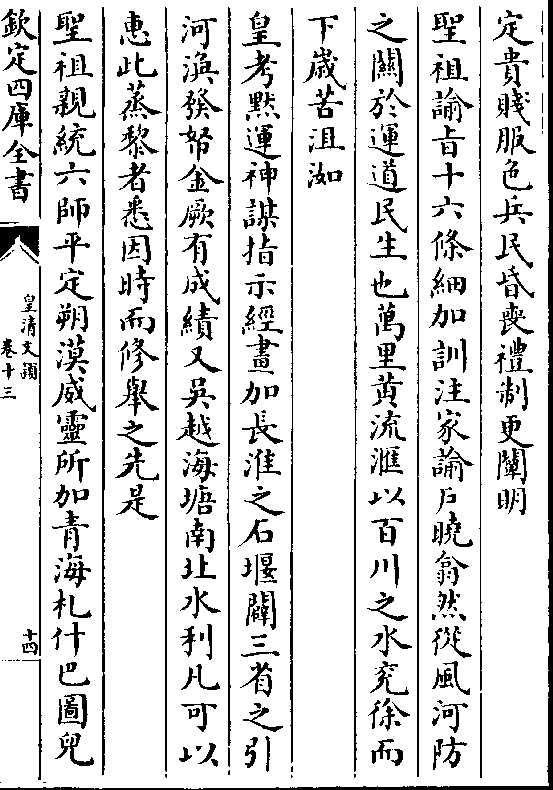 定貴賤服色兵民昏喪禮制更闡明
聖祖諭旨十六條細加訓注家諭戶曉翕然從風河防
之關於運道民生也萬里黄流滙以百川之水兖徐而
下歲苦沮洳
皇考黙運神謀指示經畫加長淮之石堰闢三省之引
河渙發帑金厥有成績又吳越海塘南北水利凡可以
惠此蒸黎者悉因時而修舉之先是
聖祖親統六師平定朔漠威靈所加青海札什巴圖兒
欽定四庫全書
皇清文頴
卷十三
十四